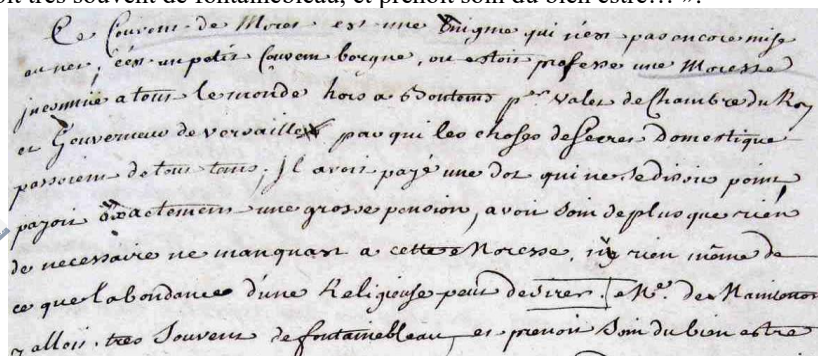 oit très souvent de fontainebleau, et prenoit soin du bien estre… ».
Ce Couvent de Moret est une Enigme qui n'est pas encore mise
au net, c'est un petit Couvent borgne, ou estoit professe une Moresse
inconnüe a tout le monde hors a Bontems pr. valet de Chambre du Roy
et Gouverneur de versailles par qui les choses de secret Domestique
passoient de tout tems; Il avoit payé une dot qui ne se disoit point,
payoit Exactement une grosse pension, avoit soin de plus que rien
de necessaire ne manquast a cette Moresse, ny rien même de
ce que l'abondance d'une Religieuse peut desirer. Me. de Maintenon
y alloit tres Souvent de fontainebleau et prenoit Soin du bien estre